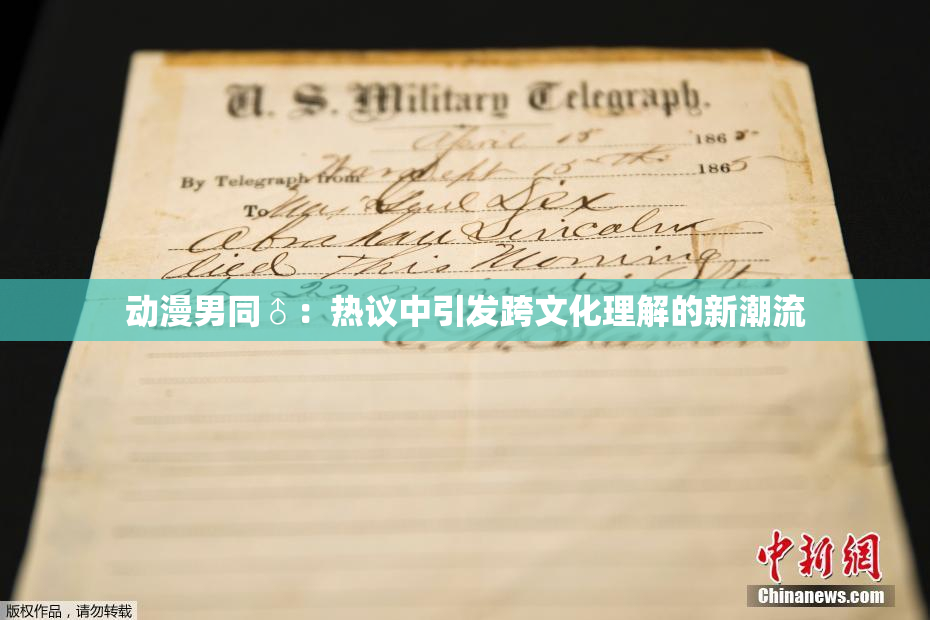 U. S. Military Telegraph.
April 15 1865
By Telegraph from War Dept 15th 1865
To Maj Genl Dix
Abraham Lincoln
died This Morning
at 22 minutes after
动漫男同♂：热议中引发跨文化理解的新潮流
E. M. Stanton
中新网
Chinanews.com
版权作品，请勿转载